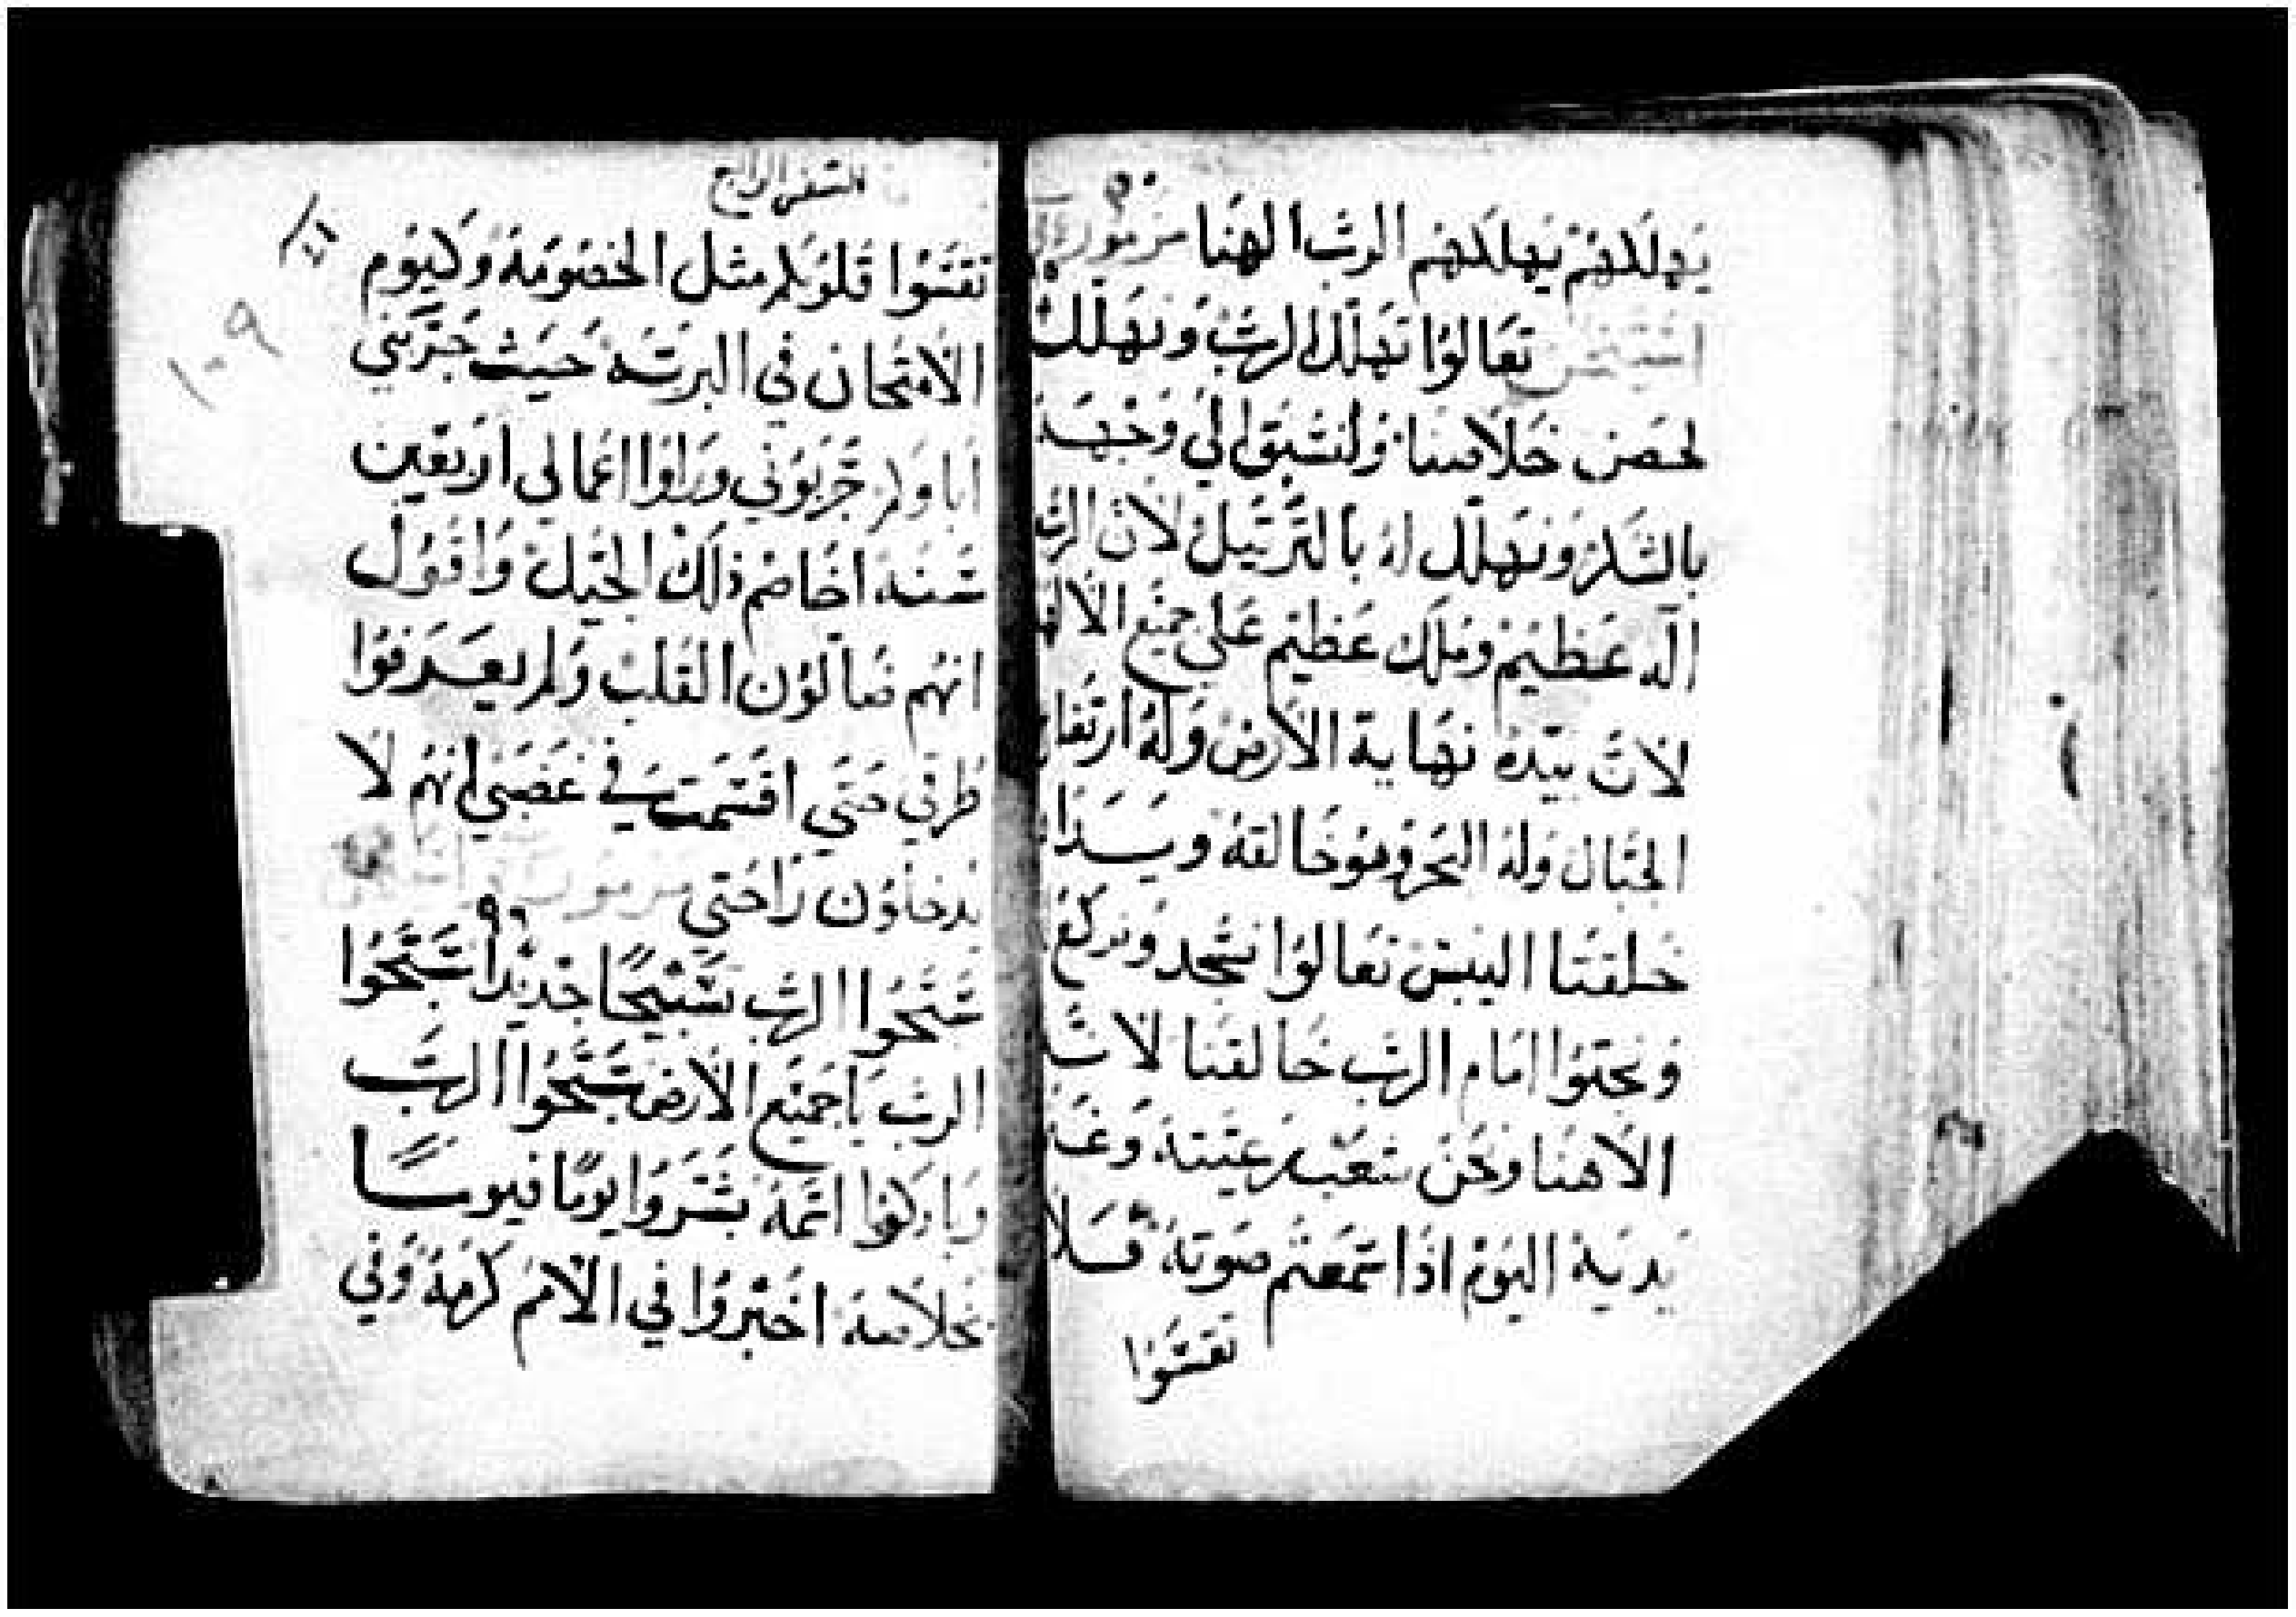 يهلكهم يهلكهم الرب الهنا مزمور
تعالوا نهلل الرب ونهلل
لحصن خلاصنا ولنسبق الي وجهه
بالشكر ونهلل له بالترتيل لان الرب
اله عظيم وملك عظيم علي جميع الالهه
لان بيده نهاية الارض وله ارتفاع
الجبال وله البحر وهو خالقه ويداه
خلقتا اليبس تعالوا نسجد ونركع
ونجثوا امام الرب خالقنا لانه
الاهنا ونحن شعب رعيته وغنم
يديه اليوم اذا سمعتم صوته فلا
تقسوا
السفر الرابع
تقسوا قلوبكم مثل الخصومة وكيوم
الامتحان في البريه حيث جربني
اباوكم جربوني وراوا اعمالي اربعين
سنه اخاصم ذلك الجيل واقول
انهم ضالون القلب ولم يعرفوا
طرقي حتي اقسمت في غضبي انهم لا
يدخلون راحتي مزمور
سبحوا الرب تسبيحا جديدا سبحوا
الرب يا جميع الارض سبحوا الرب
وباركوا اسمه بشروا يوما فيوما
بخلاصه اخبروا في الامم كرمه وفي
١٠٩